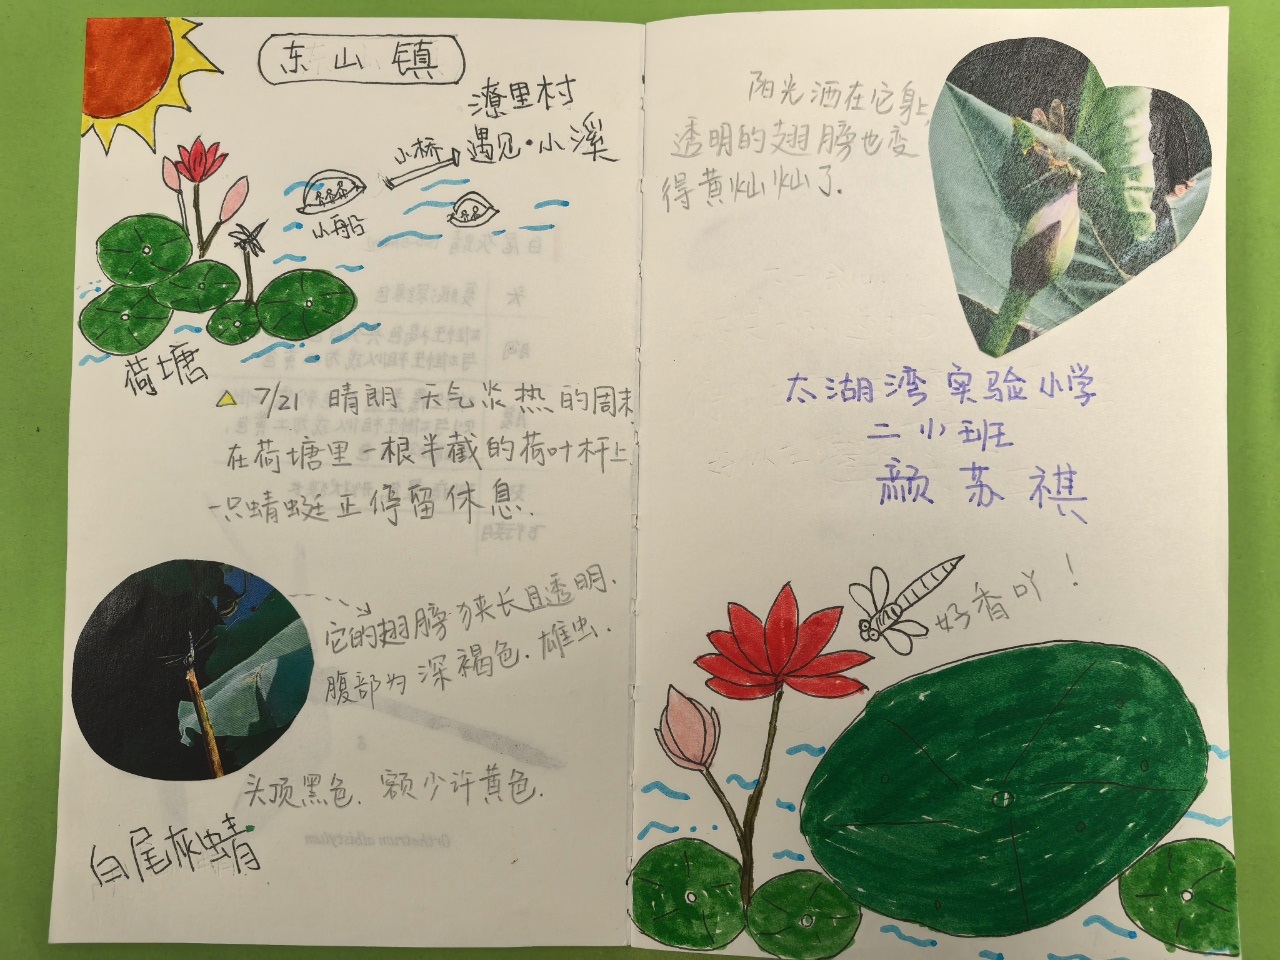 东山镇
潦里村
遇见·小溪
小桥
小船
荷塘
7/21 晴朗 天气炎热的周末
在荷塘里一根半截的荷叶杆上
一只蜻蜓正停留休息.
它的翅膀狭长且透明.
腹部为深褐色.雄虫.
头顶黑色.额少许黄色.
白尾灰蜻
阳光洒在它身上
透明的翅膀也变
得黄灿灿了.
太湖湾实验小学
二小班
颜苏祺
好香吖!